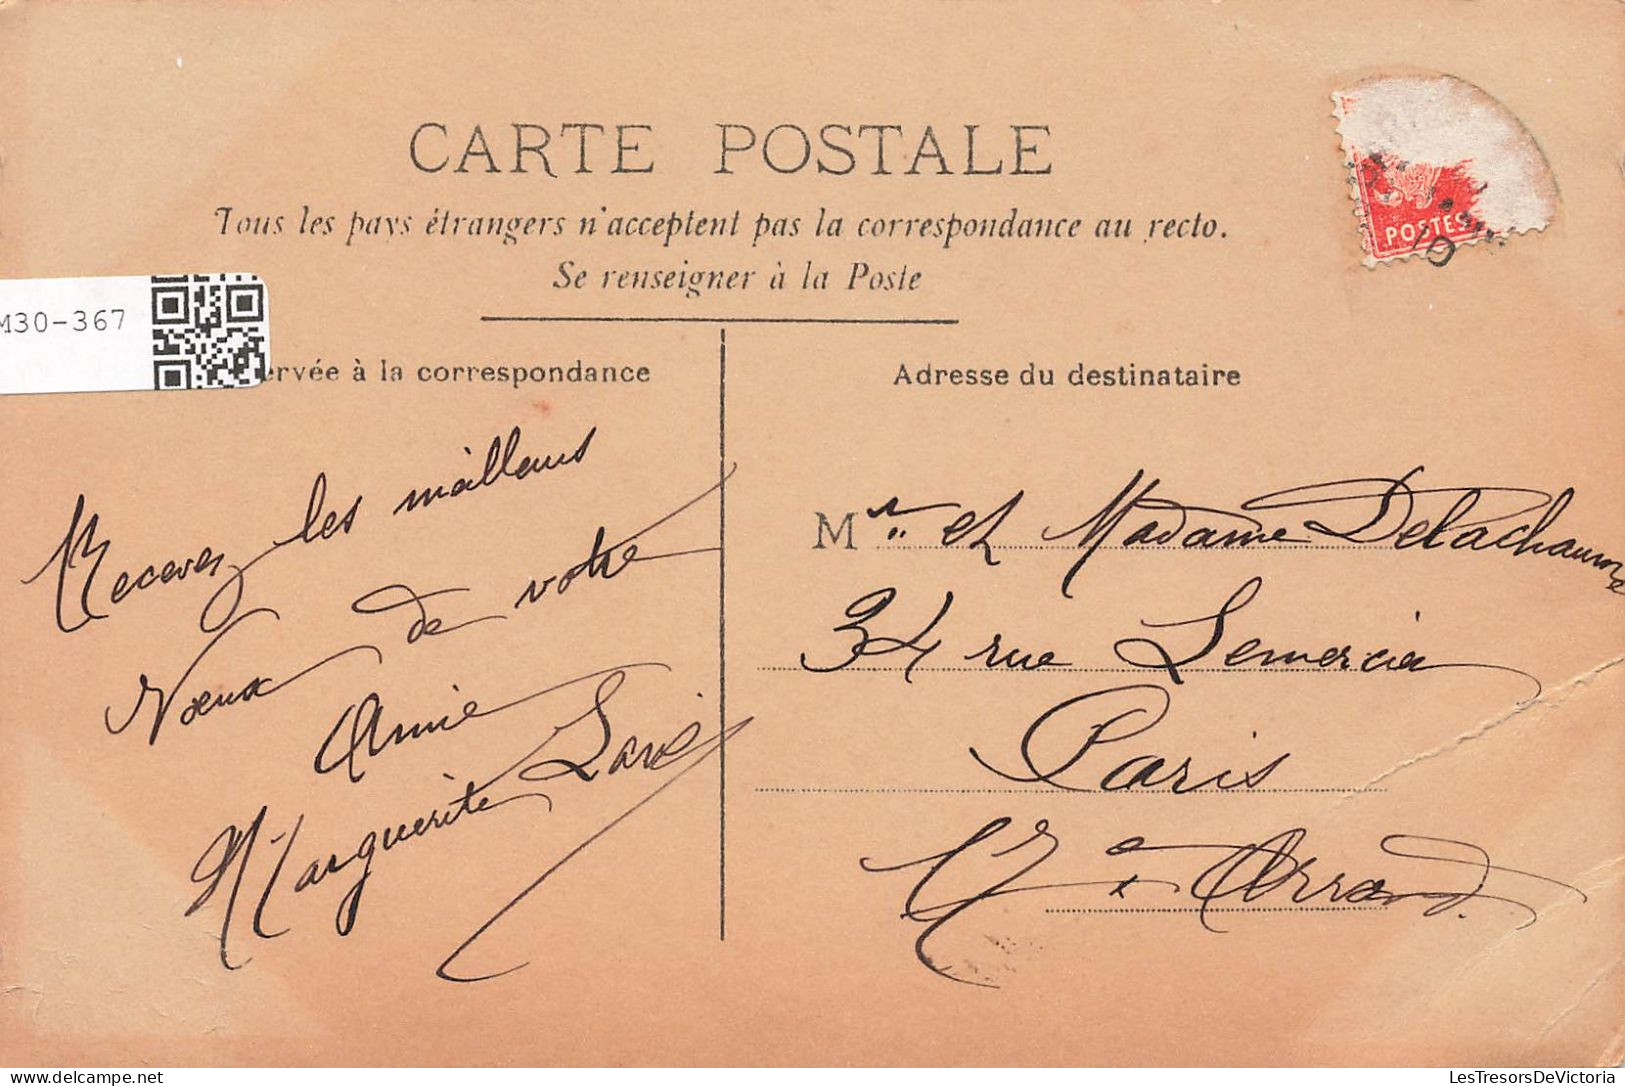 CARTE POSTALE
Tous les pays étrangers n'acceptent pas la correspondance au recto.
Se renseigner à la Poste
POSTES
M30-367
ervée à la correspondance
Adresse du destinataire
Recevez les meilleurs
Voeux de votre
Amie
Marguerite
Mr et Madame Delachaume
34 rue Lemercier
Paris
17e Arrond.
LesTresorsDeVictoria
delcampe.net